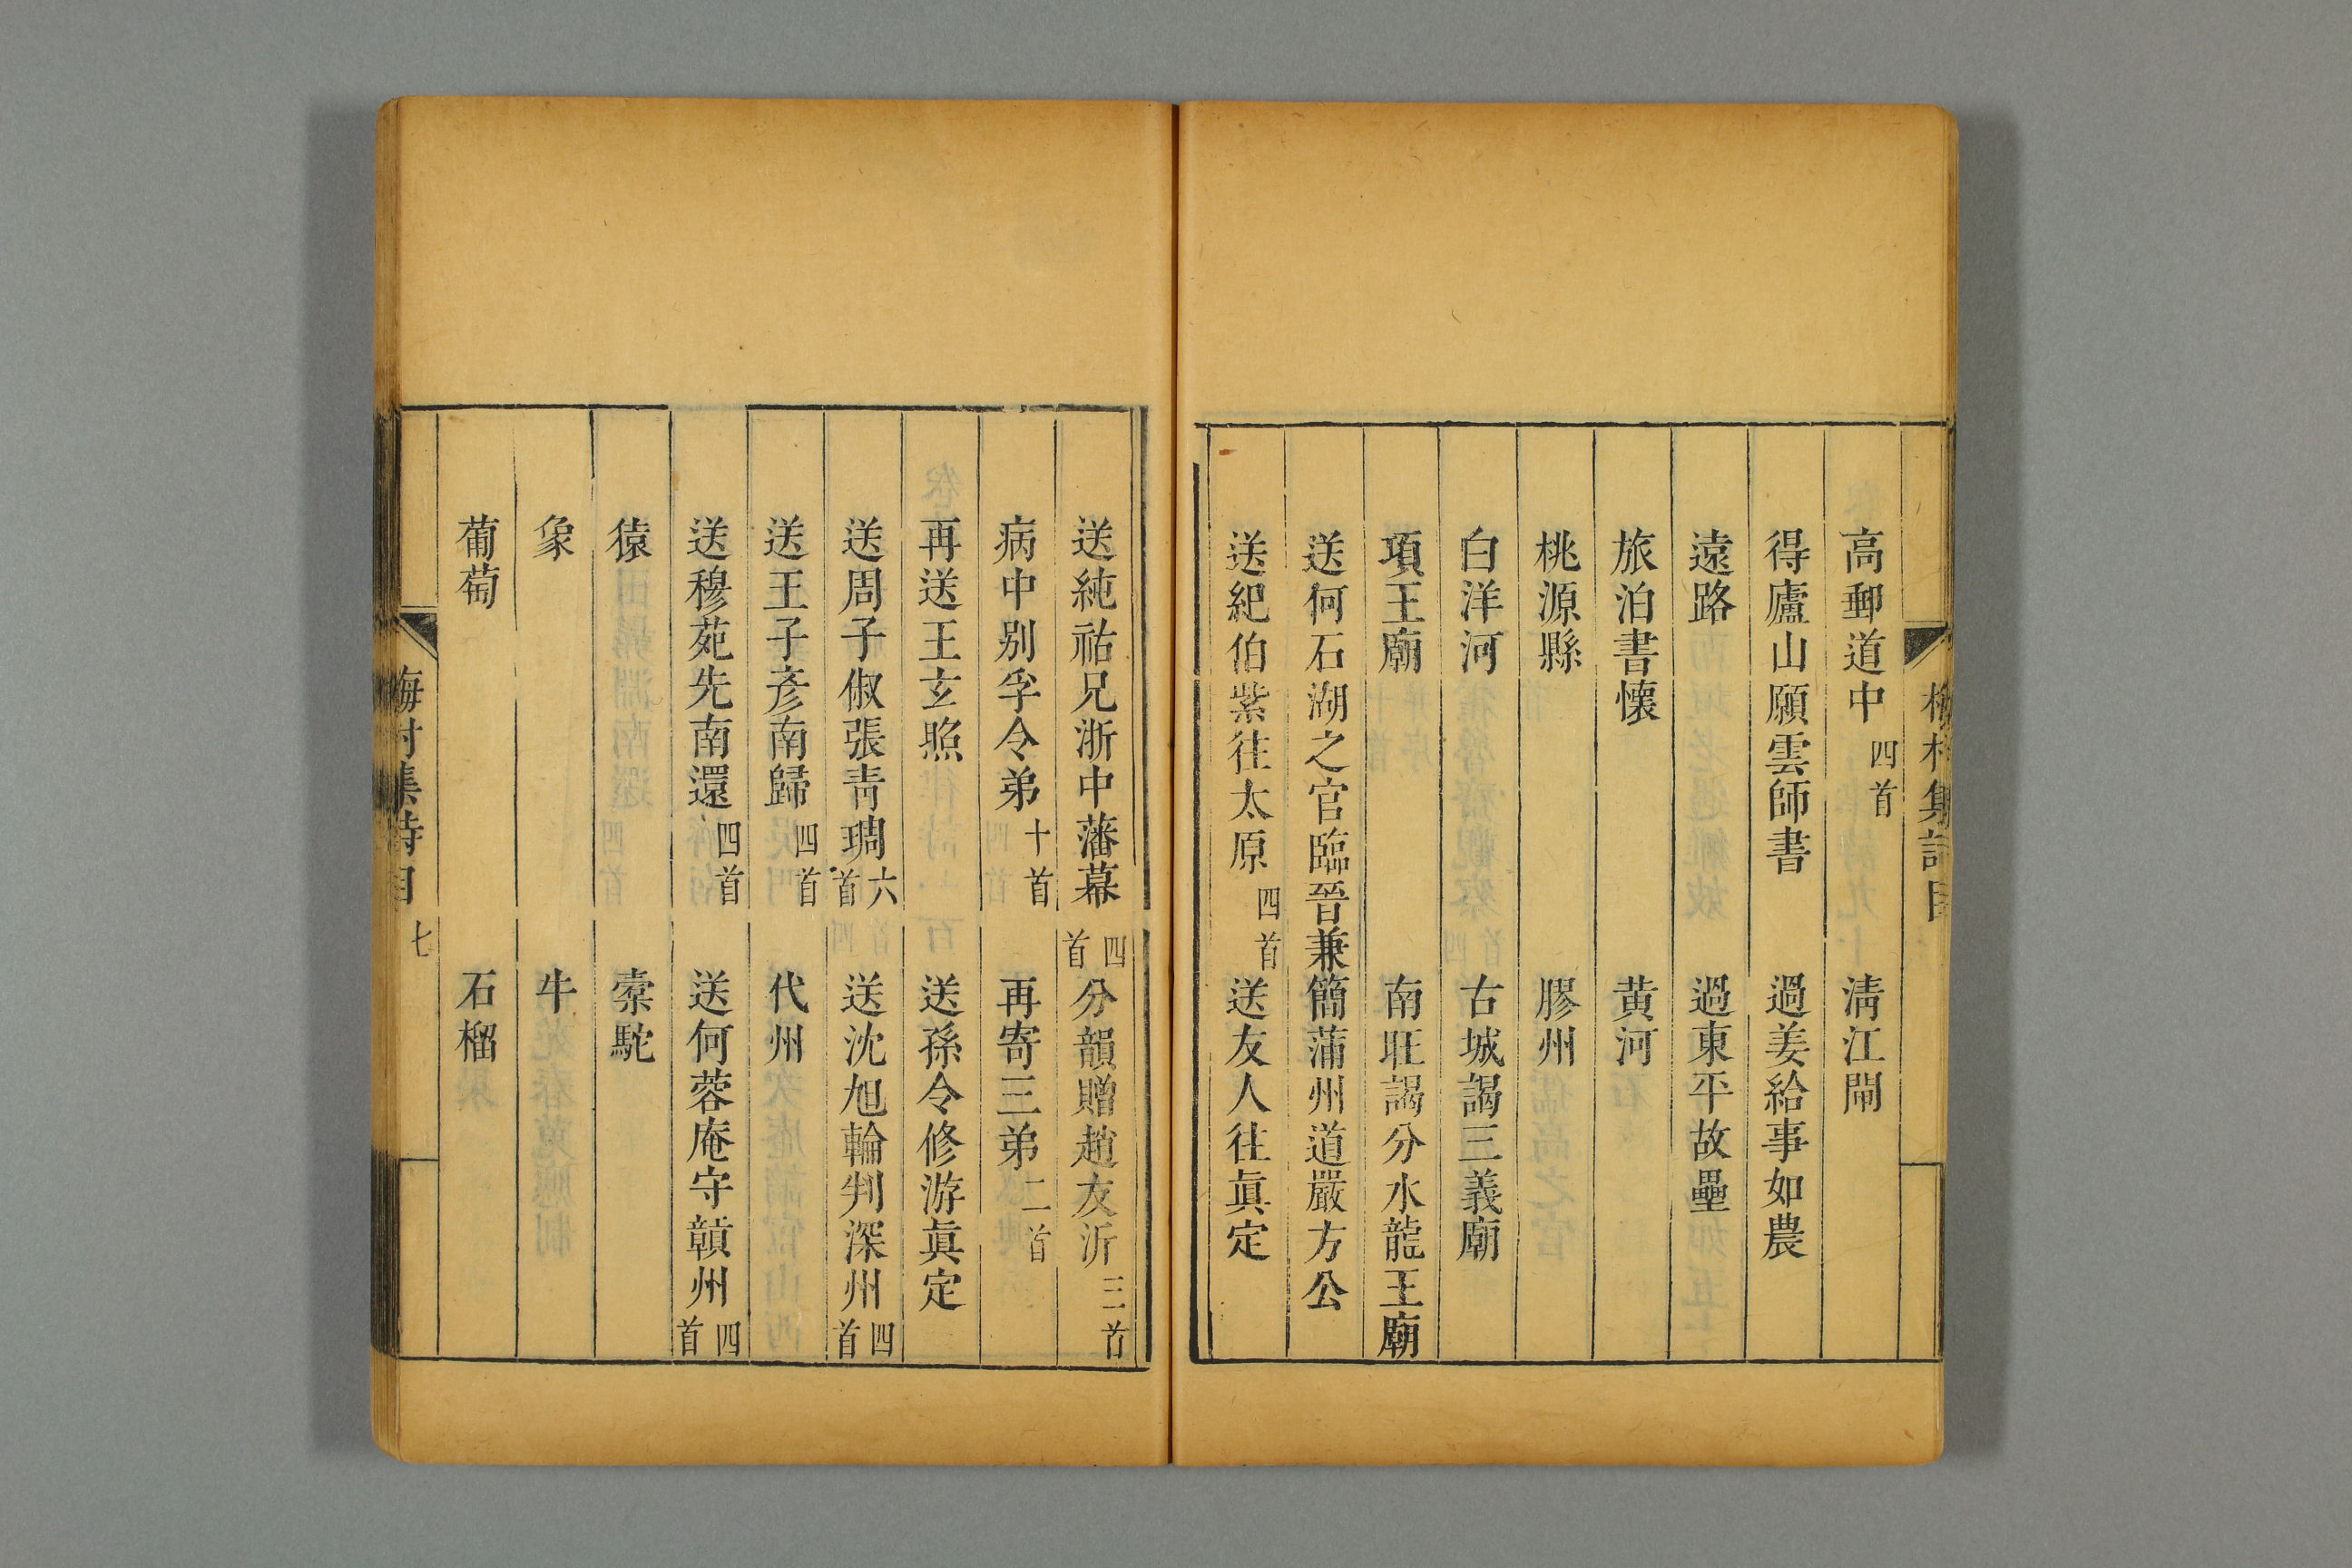 梅村集詩目
高郵道中四首 淸江閘
得廬山願雲師書 過姜給事如農
遠路 過東平故壘
旅泊書懷 黃河
桃源縣 膠州
白洋河 古城謁三義廟
項王廟 南旺謁分水龍王廟
送何石湖之官臨晉兼簡蒲州道嚴方公
送紀伯紫往太原四首 送友人往眞定
送純祜兄浙中藩幕四首 分韻贈趙友沂三首
病中别孚令弟十首 再寄三弟二首
再送王玄照 送孫令修游眞定
送周子俶張靑琱六首 送沈旭輪判深州四首
送王子彥南歸四首 代州
送穆苑先南還四首 送何蓉庵守贛州四首
猿 槖駝
象 牛
葡萄 石榴
梅村集詩目 七